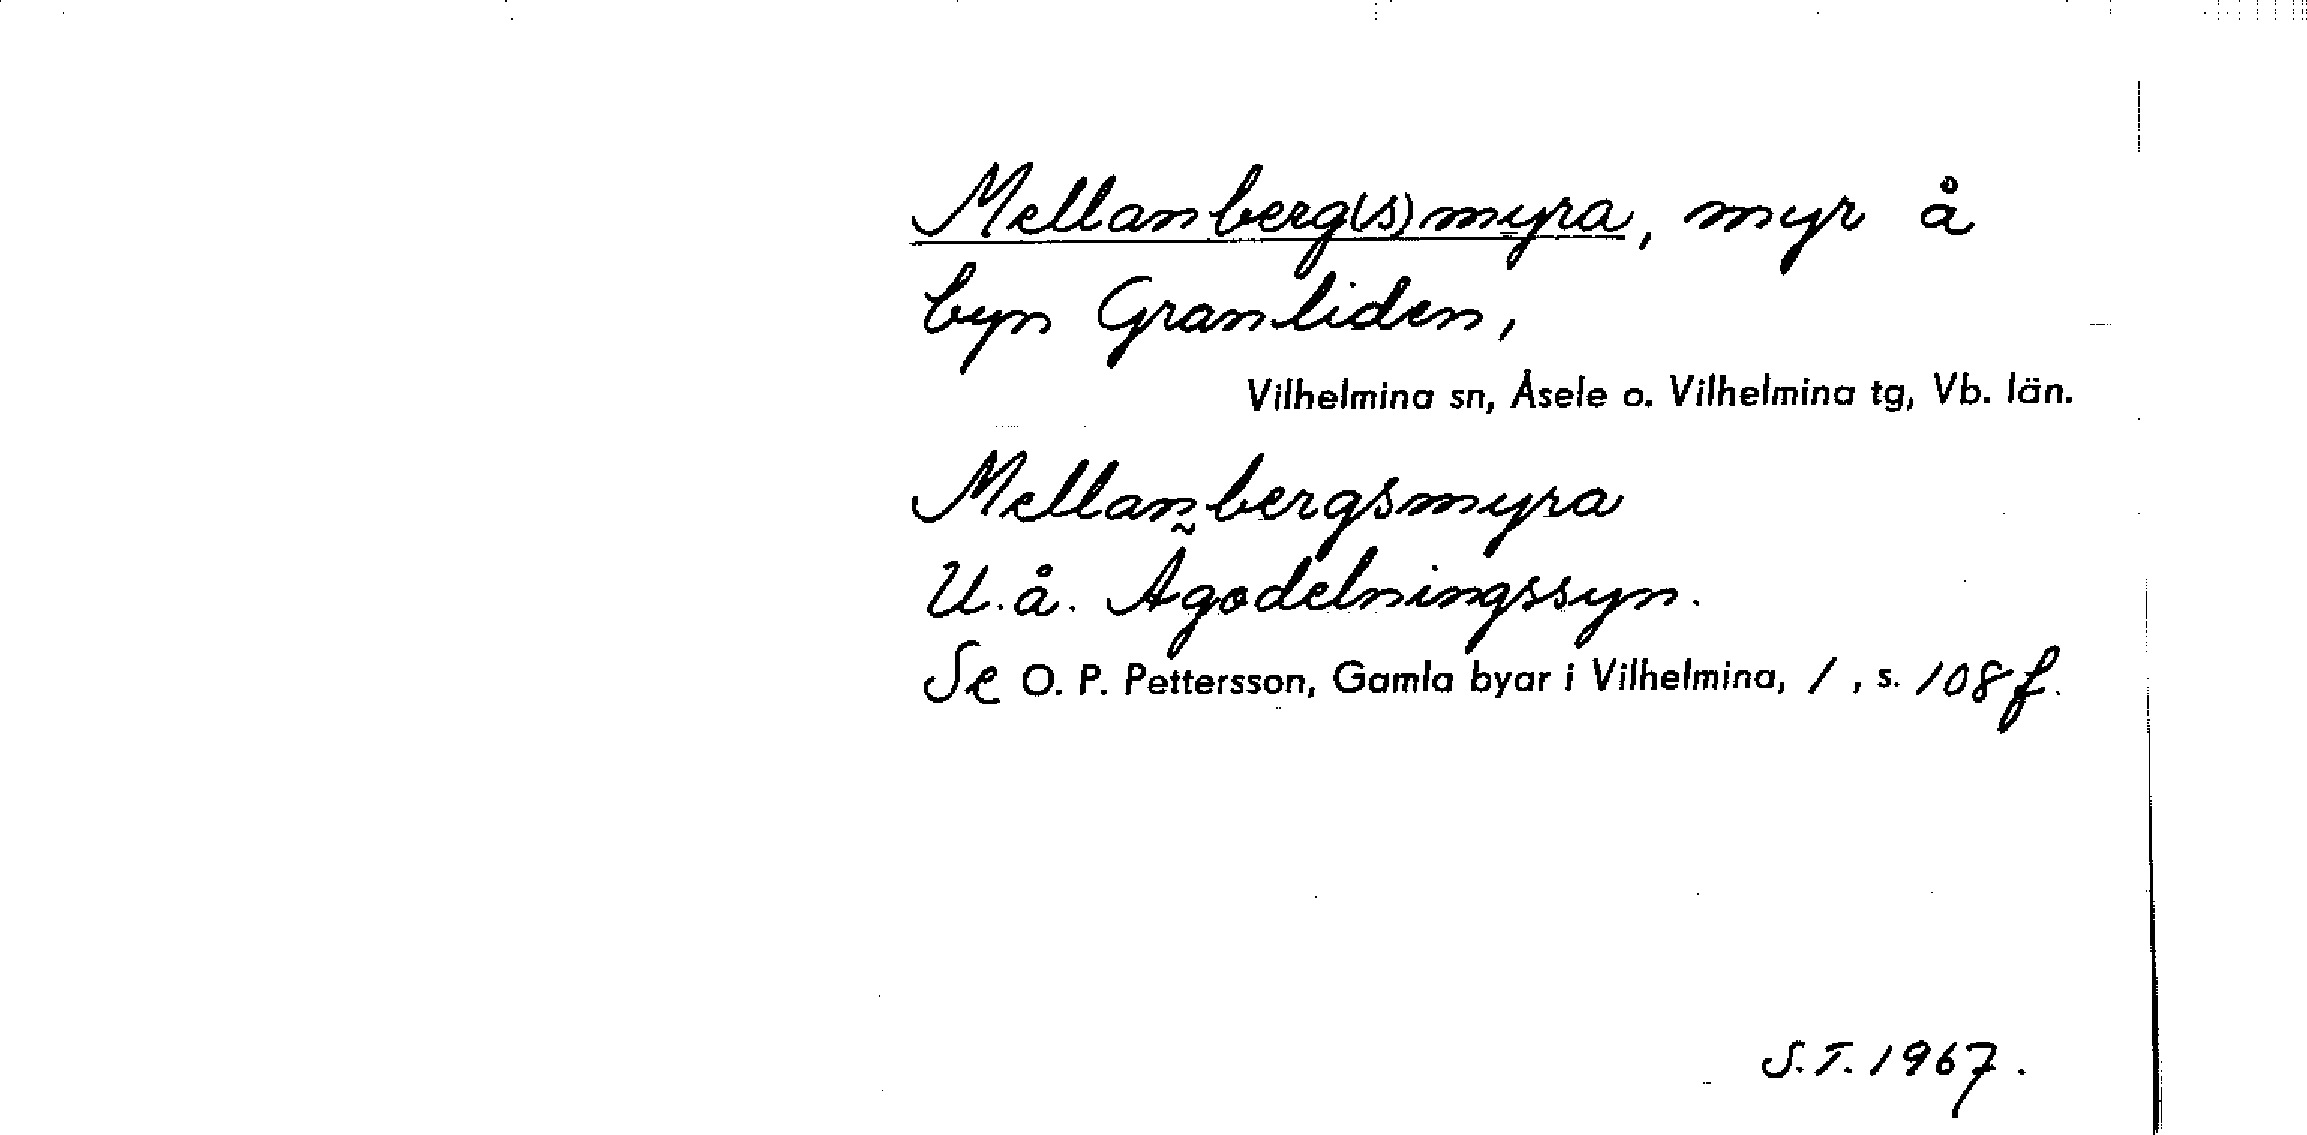 Mellanberg(s)myra, myr å
byn Granliden,
Vilhelmina sn, Åsele o. Vilhelmina tg, Vb. län.
Mellanbergsmyra
U.å. Ägodelningssyn.
Se O. P. Pettersson, Gamla byar i Vilhelmina, 1, s. 108 f.
S.T. 1967.